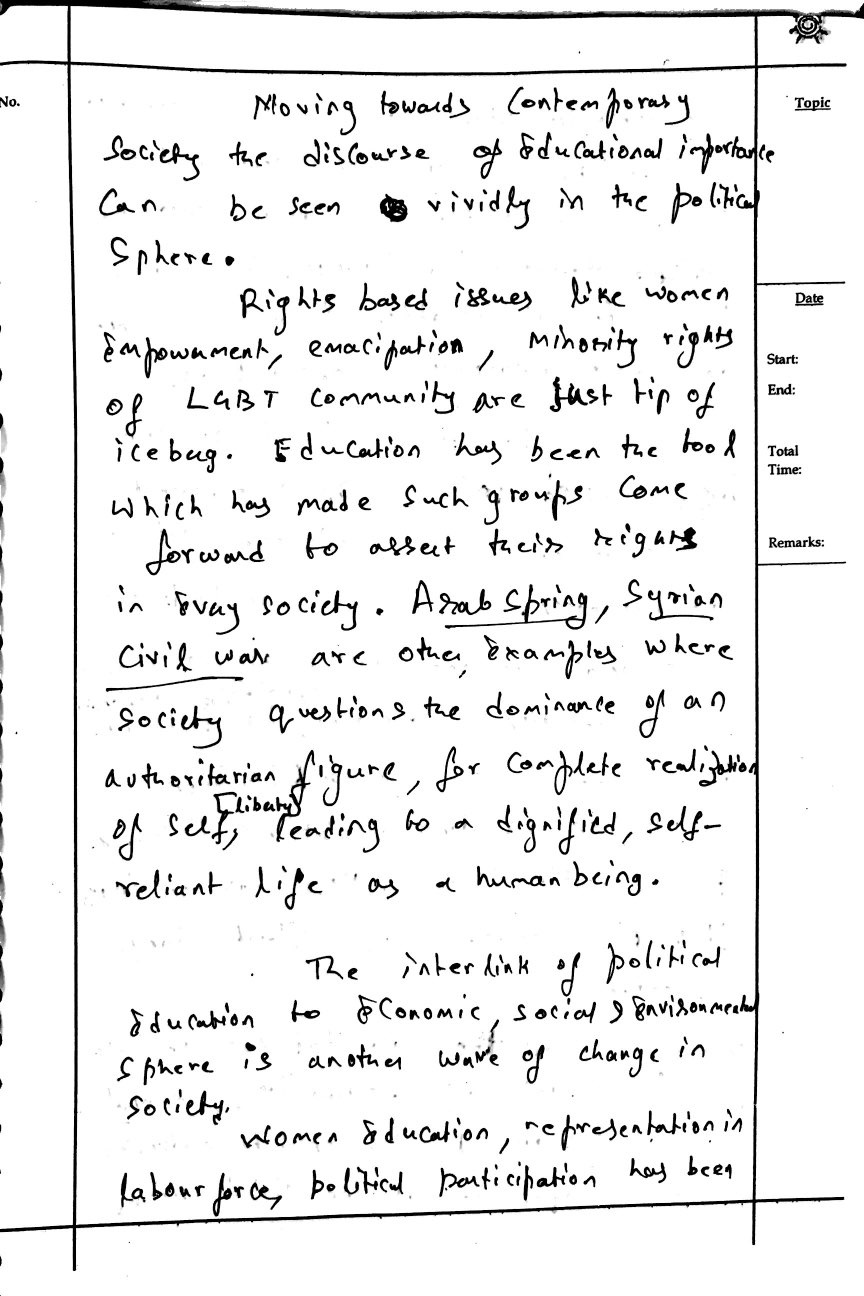 No.
Topic
Moving towards Contemporary
Society the discourse of Educational importance
Can be seen vividly in the political
Sphere.
Date
Rights based issues like women
Empowerment, emacipation, minority rights
Start:
of LGBT community are just tip of
End:
iceberg. Education has been the tool
Total
Time:
which has made such groups come
forward to assert their rights
Remarks:
in Every society. Arab Spring, Syrian
Civil war are other Examples where
society questions the dominance of an
authoritarian figure, for complete realization
[liberty]
of self, leading to a dignified, self-
reliant life as a human being.
The interlink of political
Education to Economic, social & Environmental
sphere is another wave of change in
society.
Women Education, representation in
labour force, political participation has been